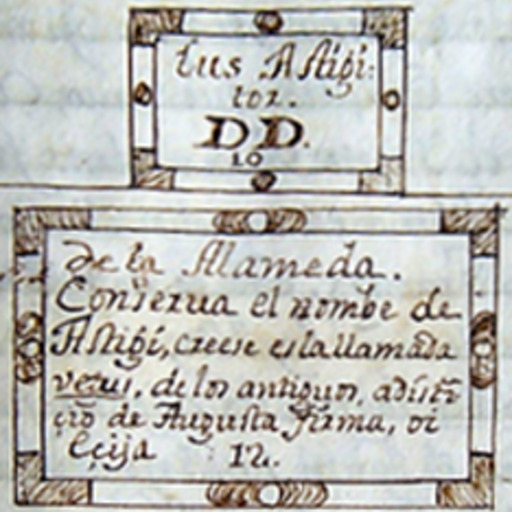 tus Astigi:
tor.
DD.
10
de la Alameda.
Conserua el nombe de
Astigi, creese es la llamada
vetus, de los antiguos, adisti
çio de Augusta firma, oi
Eçija 12.